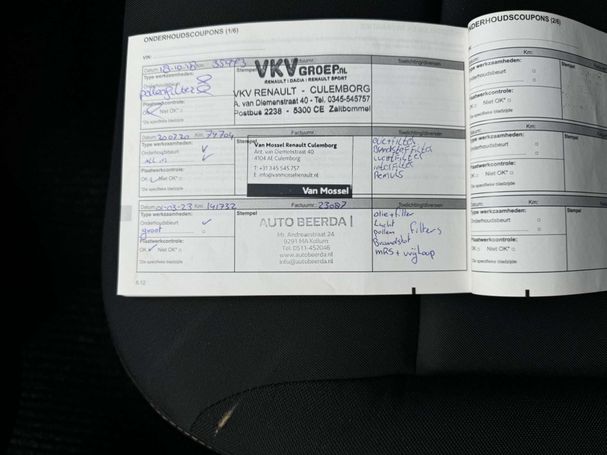 ONDERHOUDSCOUPONS (1/6)
VIN:
Datum: 18.10.18 Km:
Factuurnr.:
Toelichting/diversen
Type werkzaamheden:
Stempel
Onderhoudsbeurt
pollenfilter
Plaatwerkcontrole:
OK Niet OK*
*Zie specifieke bladzijde
VKV GROEP.NL
RENAULT | DACIA | RENAULT SPORT
VKV RENAULT - CULEMBORG
A. van Diemenstraat 40 - Tel. 0345-545757
Postbus 2238 - 5300 CE Zaltbommel
Datum: 200720 Km: 74704
Type werkzaamheden:
Onderhoudsbeurt
ALL in
Plaatwerkcontrole:
OK Niet OK*
*Zie specifieke bladzijde
Van Mossel Renault Culemborg
Ant. van Diemenstraat 40
4104 AE Culemborg
T: +31 345 545 757
E: info@vanmosselrenault.nl
Van Mossel
oliefilter
Brandstoffilter
Luchtfilter
interfilter
Remvls
Datum: 01-03-23 Km: 141732
Factuurnr.: 23087
Toelichting/diversen
Type werkzaamheden:
Stempel
Onderhoudsbeurt
groot
Plaatwerkcontrole:
OK Niet OK*
*Zie specifieke bladzijde
AUTO BEERDA
Mr. Andreaestraat 24
9291 MA Kollum
Tel. 0511-452046
www.autobeerda.nl
info@autobeerda.nl
olie+filter
Lucht
pollen filters
Brandstof
MRS+ vrijloop
6.12
ONDERHOUDSCOUPONS (2/6)
Km:
Type werkzaamheden:
Stempel
Onderhoudsbeurt
Plaatwerkcontrole:
OK Niet OK*
*Zie specifieke bladzijde
Datum: Km:
Type werkzaamheden:
Stempel
Onderhoudsbeurt
Plaatwerkcontrole:
OK Niet OK*
*Zie specifieke bladzijde
Datum: Km:
Type werkzaamheden:
Stempel
Onderhoudsbeurt
Plaatwerkcontrole:
OK Niet OK*
*Zie specifieke bladzijde